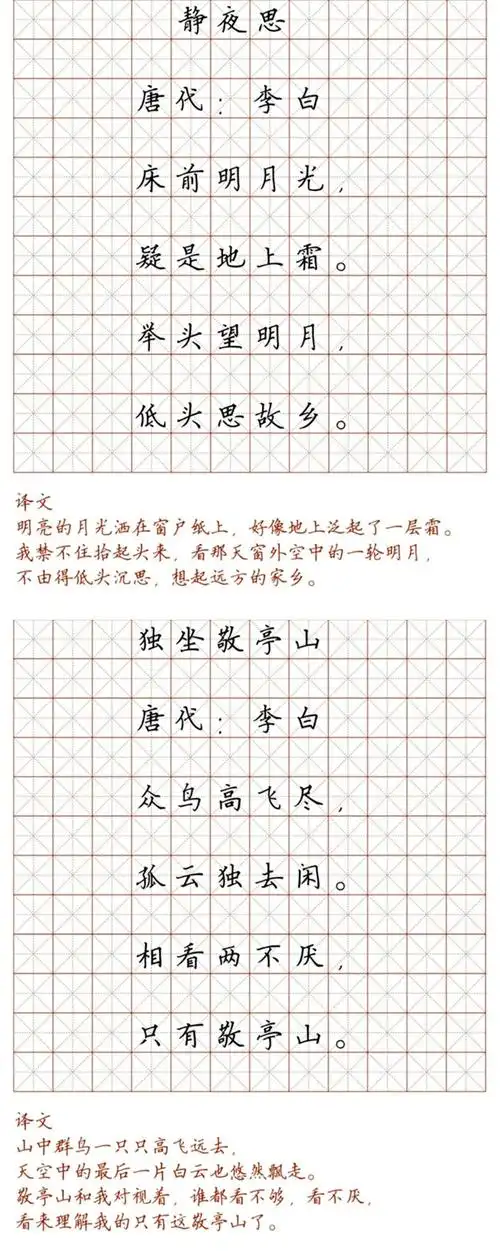 静夜思
唐代：李白
床前明月光，
疑是地上霜。
举头望明月，
低头思故乡。
译文
明亮的月光洒在窗户纸上，好像地上泛起了一层霜。
我禁不住抬起头来，看那天窗外空中的一轮明月，
不由得低头沉思，想起远方的家乡。
独坐敬亭山
唐代：李白
众鸟高飞尽，
孤云独去闲。
相看两不厌，
只有敬亭山。
译文
山中群鸟一只只高飞远去，
天空中的最后一片白云也悠然飘走。
敬亭山和我对视着，谁都看不够，看不厌，
看来理解我的只有这敬亭山了。